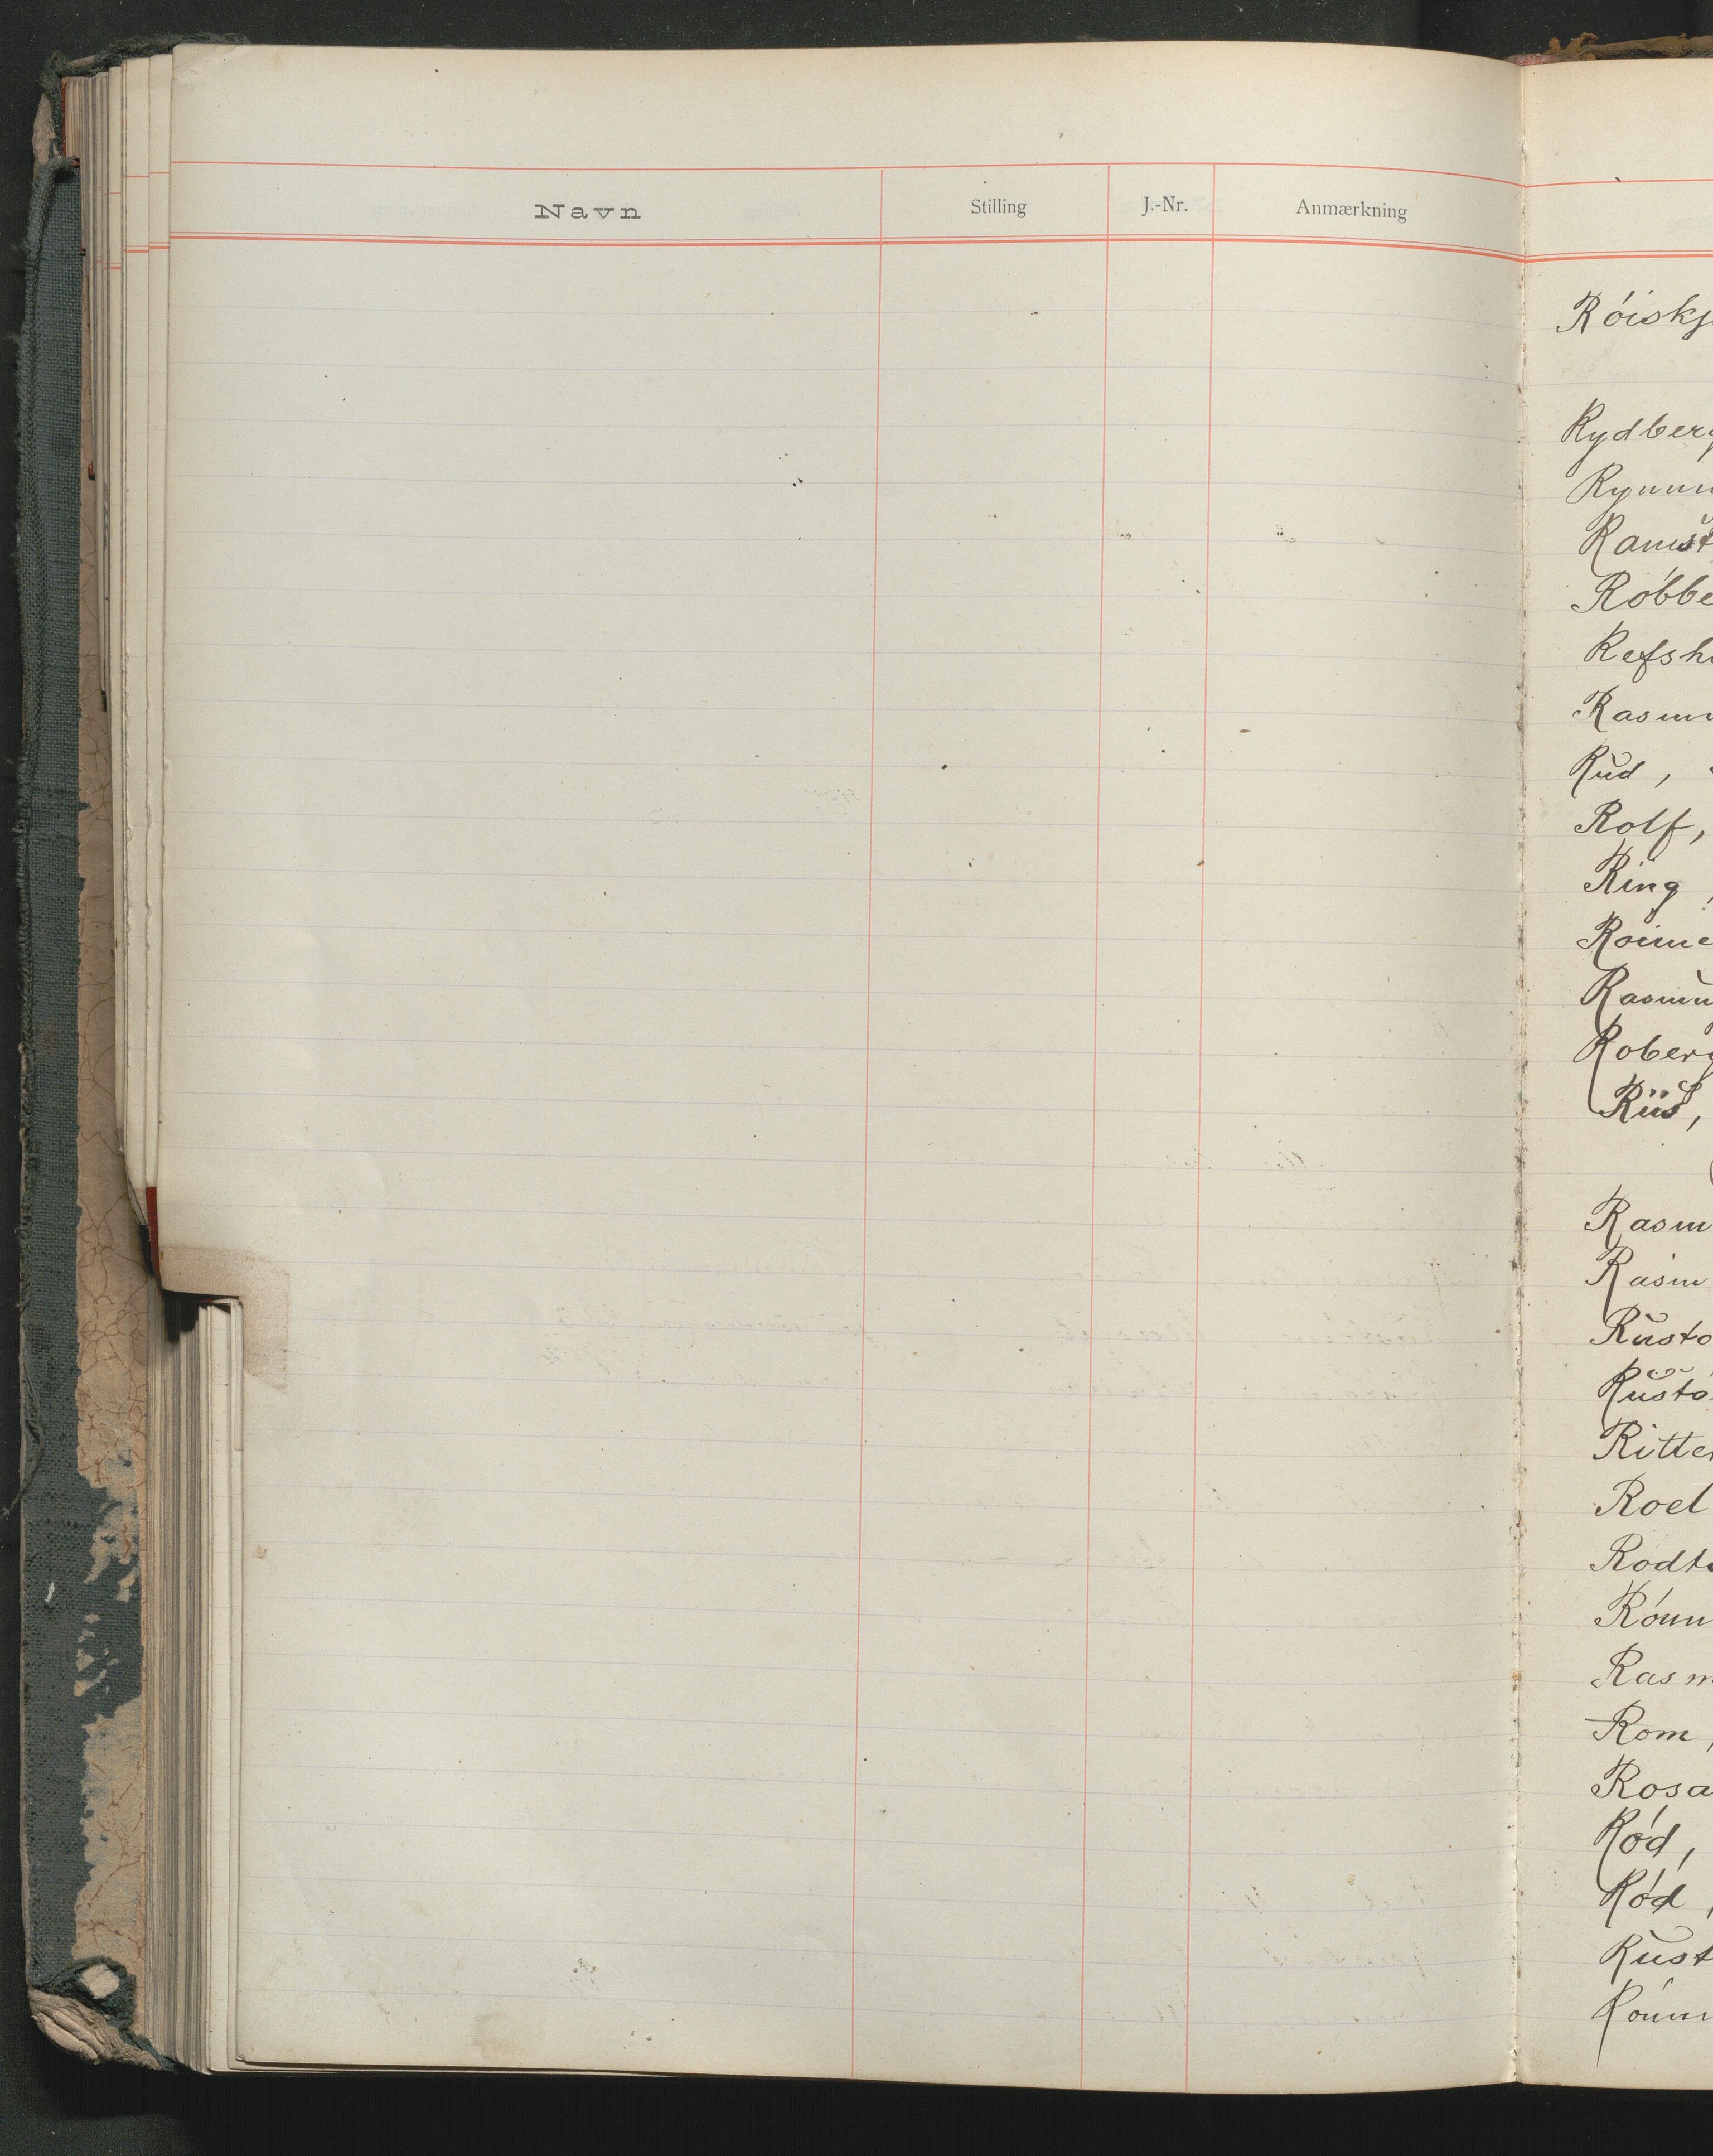 Navn Stilling J.-Nr. Anmærkning
Röiskj
Rydberg
Ramst
Róbbe
Refsh
Rasmu
Rud,
Rolf,
Ring,
Rasmu
Roberg
Riis,
Rasm
Rasm
Rusto
Rustø
Ritter
Roel
Rodt
Rónn
Rasm
Rom,
Rosa
Ród,
Ród,
Rust